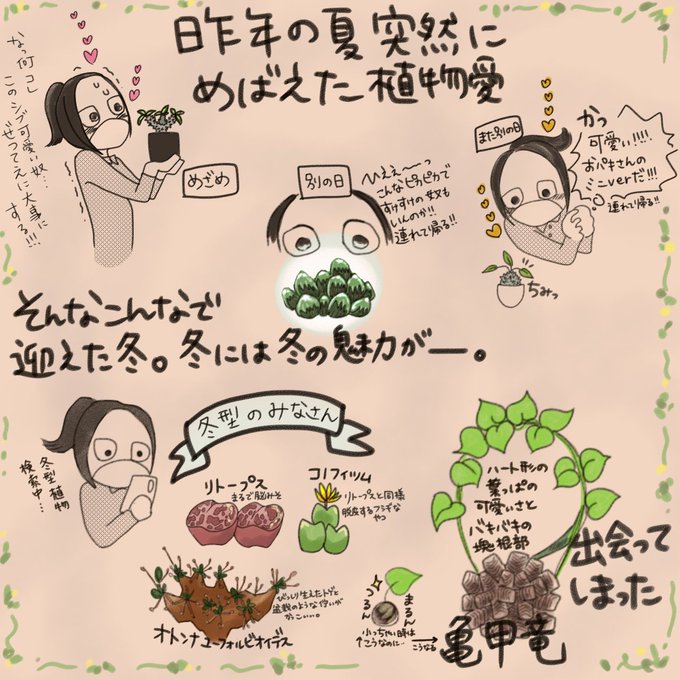 昨年の夏突然に
めばえた植物愛
なっ何コレ
このシブ可愛い奴…
ぜってえに大事に
する!!!
めざめ
別の日
ひえぇ〜〜っ
こんなピカピカで
すけすけの奴も
いんのか!!
連れて帰る!!
また別の日
かっ
可愛い!!!!
おパキさんの
ミニverだ!!!
連れて帰る!!
ちみっ
そんなこんなで
迎えた冬。冬には冬の魅力がー。
冬型植物
検索中…
冬型のみなさん
リトープス
まるで脳みそ
コノフィツム
リトープスと同様
脱皮するフシギな
やつ
オトンナユーフォルビオイデス
びっしり生えたトゲと
盆栽のような佇いが
かっこいい。
ハート形の
葉っぱの
可愛いさと
バキバキの
塊根部
出会って
しまった
つるん
まるん
小っちゃい時は
こうなのに…
こうなる
亀甲竜